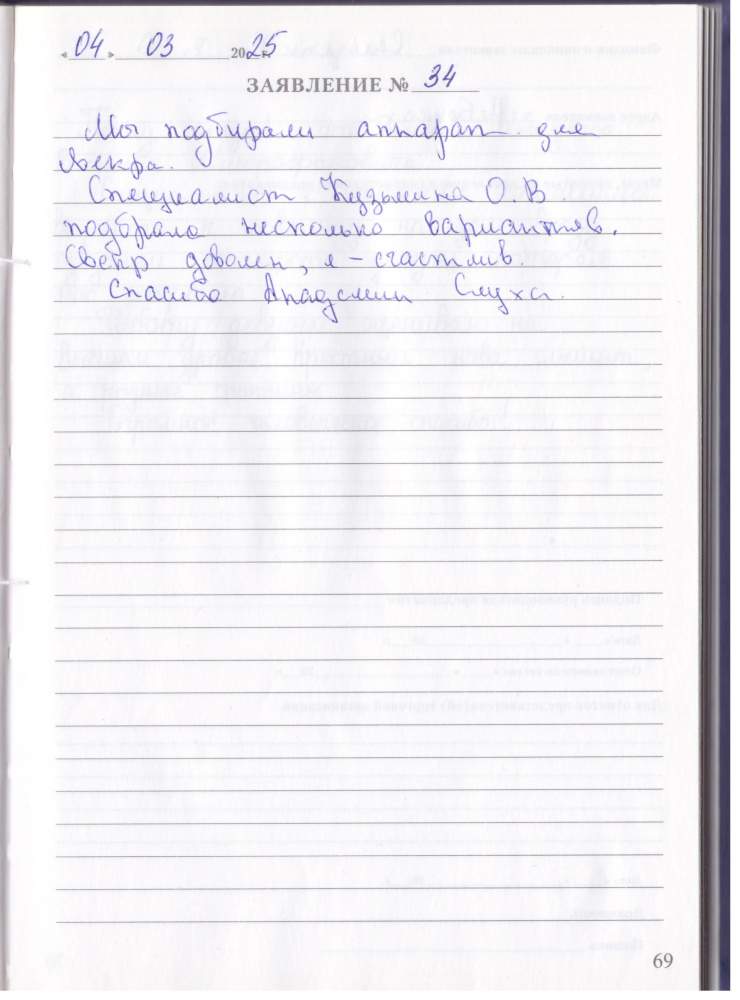 «04» 03 2025 г.
ЗАЯВЛЕНИЕ № 34
Мы подбирали аппарат для
свекра.
Специалист Кузьмина О.В.
подбрала несколько вариантов.
Свекр доволен, я – счастлив.
Спасибо Академии Слуха.
69